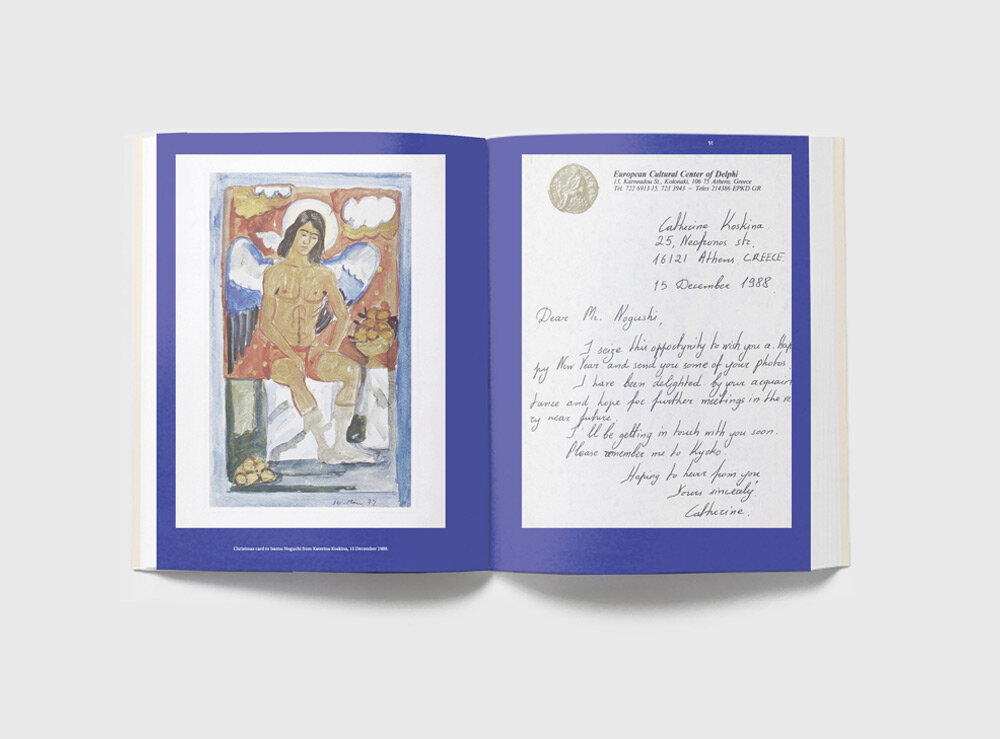 Christmas card to Isamu Noguchi from Katerina Koskina, 15 December 1988.
European Cultural Center of Delphi
13, Karneadou St., Kolonaki, 106 75 Athens, Greece
Tel. 722 6913-15, 723 3943 – Telex 214386 EPKD GR
Catherine Koskina
25, Neofronos str.
16121 Athens, GREECE
15 December 1988.
Dear Mr. Nogushi,
I seize this opportunity to wish you a Hap
py New Year and send you some of your photos.
I have been delighted by your acquain
tance and hope for further meetings in the ve
ry near future.
I'll be getting in touch with you soon.
Please remember me to Kyoko.
Hoping to hear from you
Yours sincerely,
Catherine.